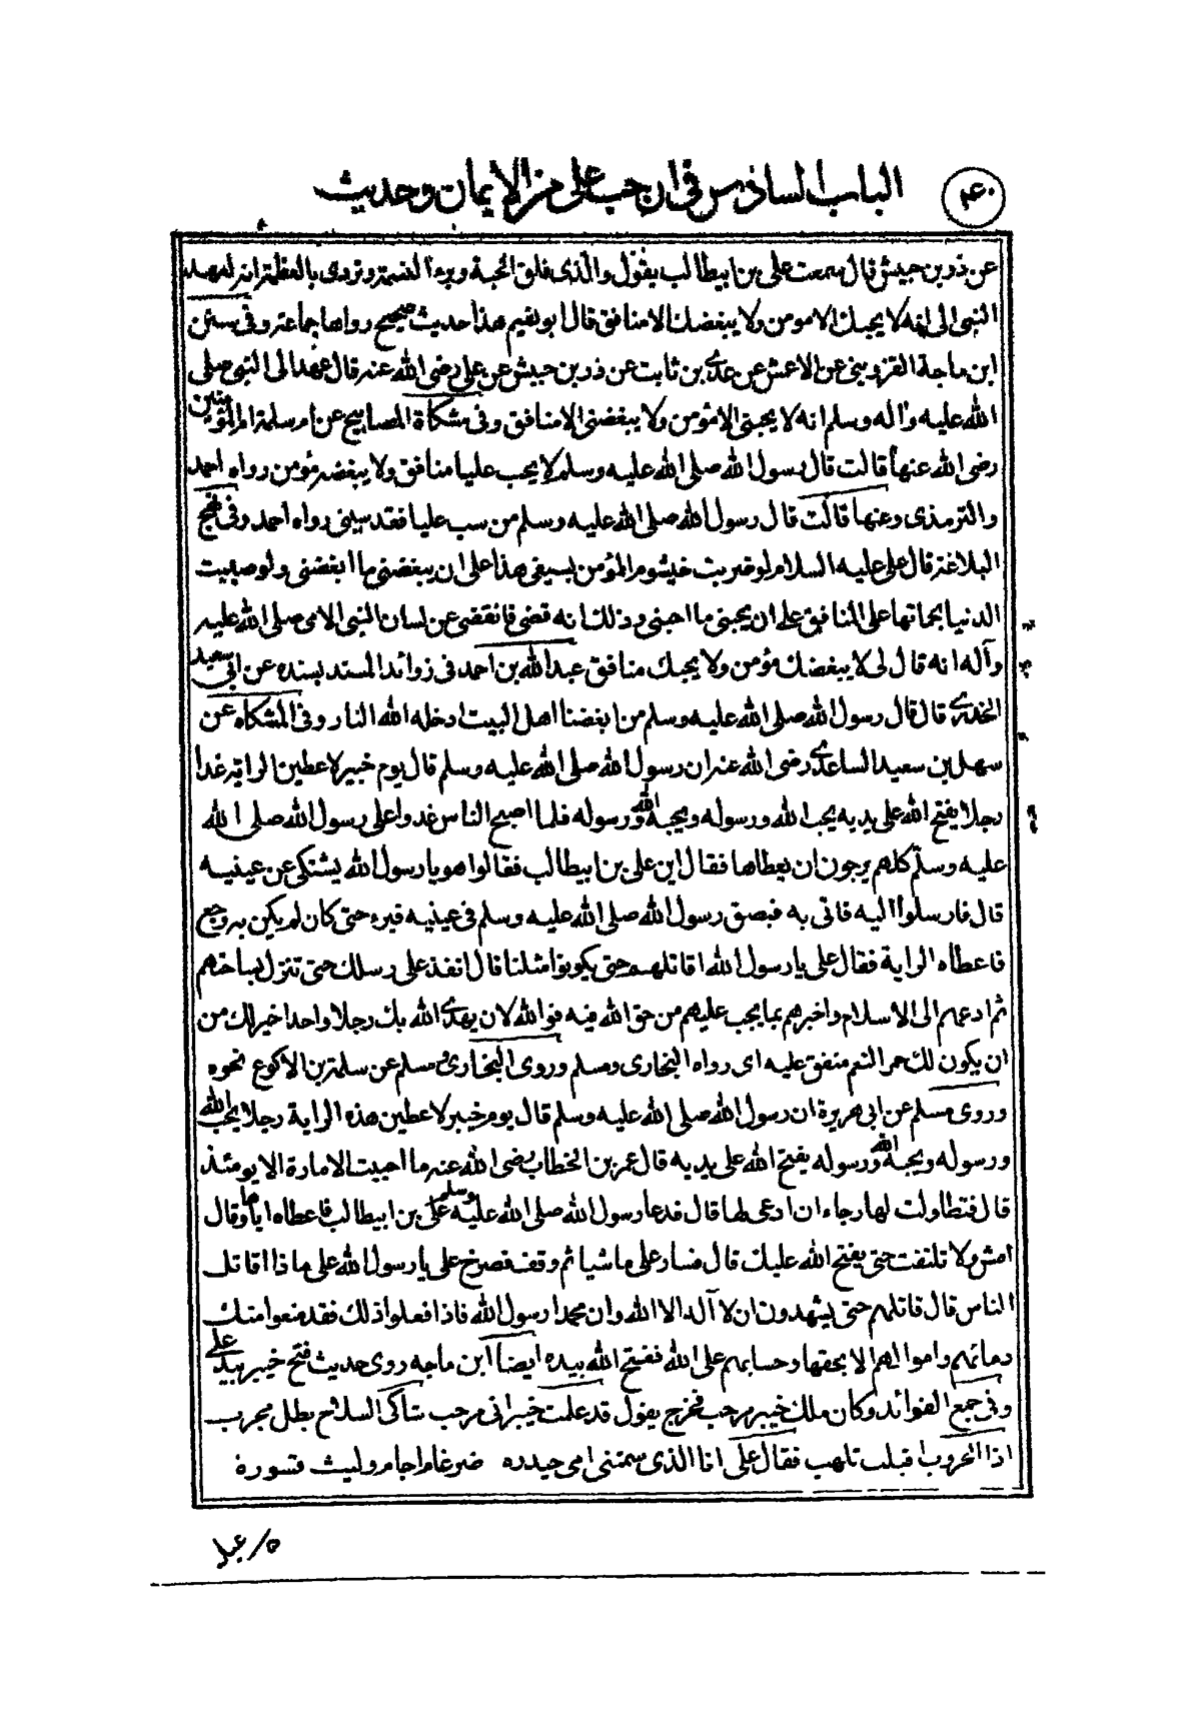 ٤٠ الباب السادس فى ان حب على من الايمان وحديث
عن ذر بن حبيش قال سمعت على بن ابيطالب يقول والذى فلق الحبة وبرء النسمة وتردى بالعظمة انه لعهد
النبى الى انه لا يحبك الا مومن ولا يبغضك الا منافق قال ابو نعيم هذا حديث صحيح رواها جماعة وفى سنن
ابن ماجة القزوينى عن الاعمش عن عدى بن ثابت عن ذر بن حبيش عن على رضى الله عنه قال عهد الى النبى صلى
الله عليه وآله وسلم انه لا يحبنى الا مؤمن ولا يبغضنى الا منافق وفى مشكاة المصابيح عن ام سلمة ام المؤمنين
رضى الله عنها قالت قال رسول الله صلى الله عليه وسلم لا يحب عليا منافق ولا يبغضه مؤمن رواه احمد
والترمذى وعنها قالت قال رسول الله صلى الله عليه وسلم من سب عليا فقد سبنى رواه احمد وفى نهج
البلاغة قال على عليه السلام لو ضربت خيشوم المؤمن بسيفى هذا على ان يبغضنى ما ابغضنى ولو صببت
الدنيا بجماتها على المنافق على ان يحبنى ما احبنى وذلك انه قضى فانقضى عن لسان النبى الامى صلى الله عليه
وآله انه قال لى لا يبغضك مؤمن ولا يحبك منافق عبد الله بن احمد فى زوائد المسند بسنده عن ابى سعيد
الخدرى قال قال رسول الله صلى الله عليه وسلم من ابغضنا اهل البيت ادخله الله النار وفى المشكاه عن
سهل بن سعيد الساعدى رضى الله عنه ان رسول الله صلى الله عليه وسلم قال يوم خيبر لاعطين الراية غدا
رجلا يفتح الله على يديه يحب الله ورسوله ويحبه الله ورسوله فلما اصبح الناس غدوا على رسول الله صلى الله
عليه وسلم كلهم يرجون ان يعطاها فقال اين على بن ابيطالب فقالوا هو يا رسول الله يشتكى عن عينيه
قال فارسلوا اليه فاتى به فبصق رسول الله صلى الله عليه وسلم فى عينيه فبرء حتى كان لم يكن به وجع
فاعطاه الراية فقال على يا رسول الله اقاتلهم حتى يكونوا مثلنا قال انفذ على رسلك حتى تنزل بساحتهم
ثم ادعهم الى الاسلام واخبرهم بما يجب عليهم من حق الله فيه فوالله لان يهدى الله بك رجلا واحدا خير لك من
ان يكون لك حمر النعم متفق عليه اى رواه البخارى ومسلم وروى البخارى ومسلم عن سلمة بن الاكوع نحوه
وروى مسلم عن ابى هريرة ان رسول الله صلى الله عليه وسلم قال يوم خيبر لاعطين هذه الراية رجلا يحب الله
ورسوله ويحبه الله ورسوله يفتح الله على يديه قال عمر بن الخطاب رضى الله عنه ما احببت الامارة الا يومئذ
قال فتطاولت لها رجاء ان ادعى لها قال فدعا رسول الله صلى الله عليه وسلم على بن ابيطالب فاعطاه اياها وقال
امش ولا تلتفت حتى يفتح الله عليك قال فسار على ما شيا ثم وقف فصرخ على يا رسول الله على ماذا اقاتل
الناس قال قاتلهم حتى يشهدون ان لا آله الا الله وان محمدا رسول الله فاذا فعلوا ذلك فقد منعوا منك
دمائهم واموالهم الا بحقها وحسابهم على الله ففتح الله بيده ايضا ابن ماجه روى حديث فتح خيبر بيد على
وفى جمع الفوائد وكان ملك خيبر مرحب فخرج يقول قد علمت خيبر انى مرحب شاكى السلاح بطل مجرب
اذا الحروب اقبلت تلهب فقال على انا الذى سمتنى امى حيدره ضرغام اجام وليث قسورة